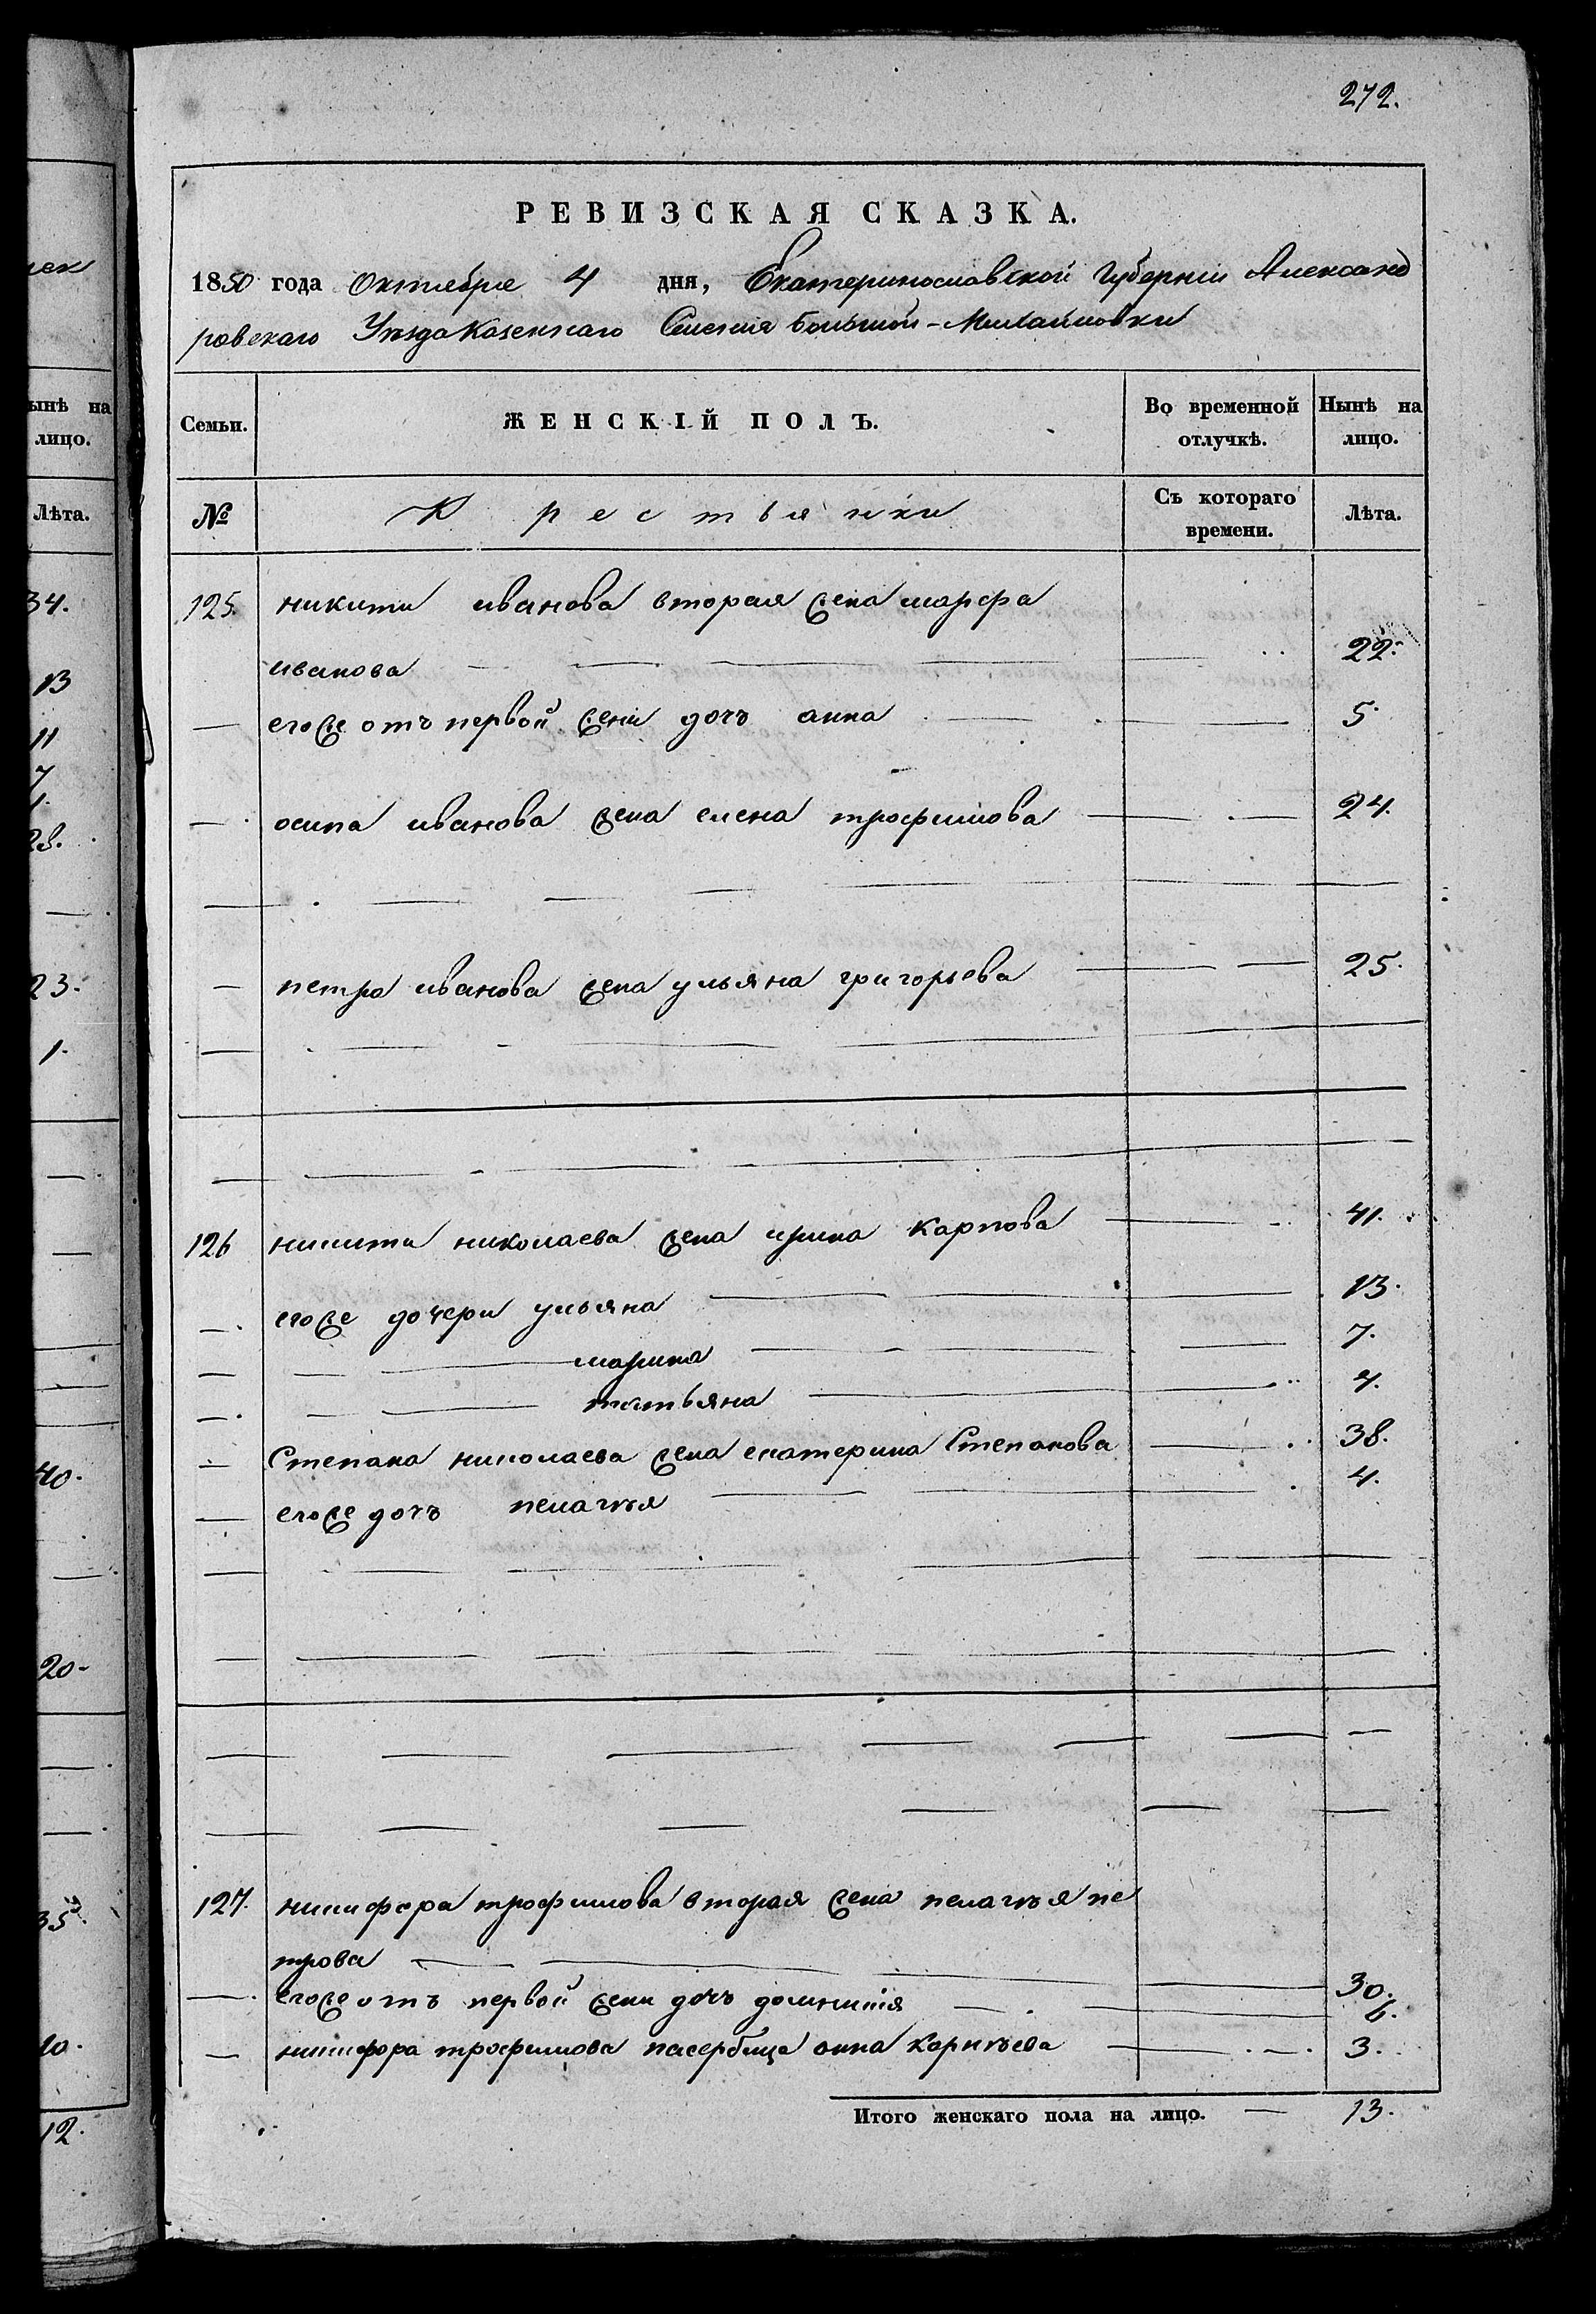 272.
РЕВИЗСКАЯ СКАЗКА.
1850 года Октебре 4 дня, Екатеринославской Губерніи Александ
ровскаго Уѣзда Казеннаго Селенія Большой-Михайловки
Семьи. ЖЕНСКІЙ ПОЛЪ. Во временной отлучкѣ. Нынѣ на лицо.
№ Крестьянки Съ котораго времени. Лѣта.
125. никиты иванова вторая жена марфа
иванова 22.
егоже отъ первой жены дочь анна 5.
осипа иванова жена елена трофимова 24.
петра иванова жена ульяна григорьева 25.
126 никиты николаева жена ирина карпова 41.
егоже дочери ульяна 13.
марина 7.
татьяна 4.
Степана николаева жена екатерина Степанова 38.
егоже дочь пелагѣя 4.
127. никифора трофимова вторая жена пелагѣя пе
трова 30.
егоже отъ первой жены дочь домникія 6.
никифора трофимова пасербица анна корнѣева 3.
Итого женскаго пола на лицо. 13.
ынѣ на
лицо.
Лѣта.
34.
13
11
7
23.
1.
40.
20-
35.
10.
12.